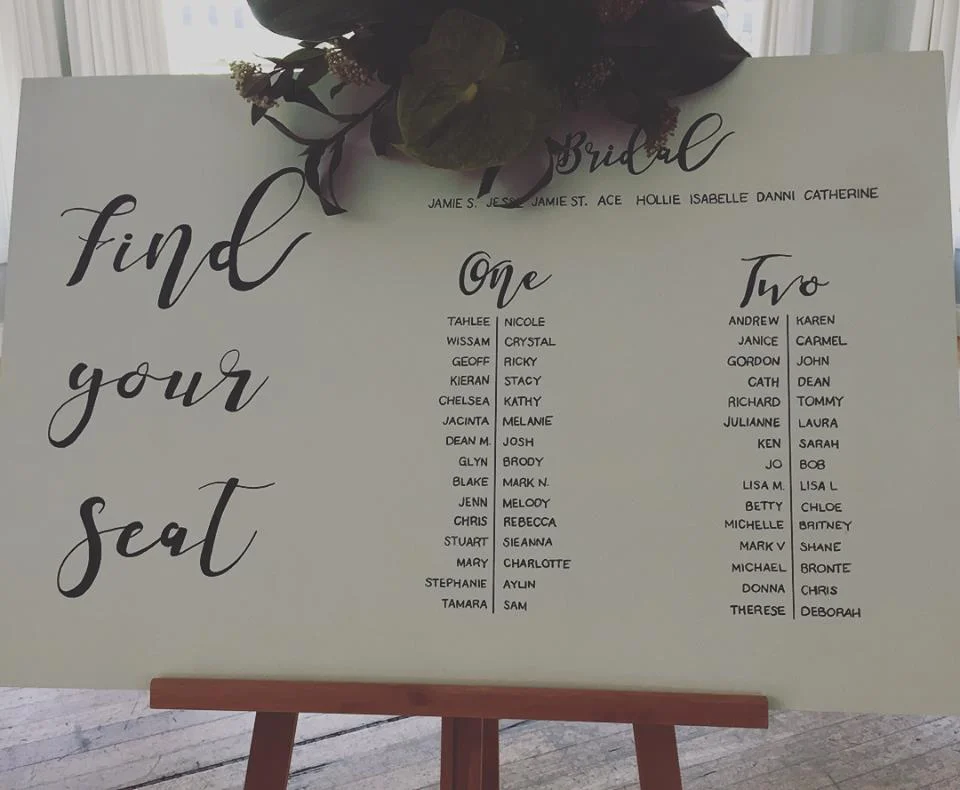 Find
your
seat
Bridal
JAMIE S. JESSE JAMIE ST. ACE HOLLIE ISABELLE DANNI CATHERINE
One
TAHLEE NICOLE
WISSAM CRYSTAL
GEOFF RICKY
KIERAN STACY
CHELSEA KATHY
JACINTA MELANIE
DEAN M. JOSH
GLYN BRODY
BLAKE MARK N.
JENN MELODY
CHRIS REBECCA
STUART SIEANNA
MARY CHARLOTTE
STEPHANIE AYLIN
TAMARA SAM
Two
ANDREW KAREN
JANICE CARMEL
GORDON JOHN
CATH DEAN
RICHARD TOMMY
JULIANNE LAURA
KEN SARAH
JO BOB
LISA M. LISA L
BETTY CHLOE
MICHELLE BRITNEY
MARK V SHANE
MICHAEL BRONTE
DONNA CHRIS
THERESE DEBORAH